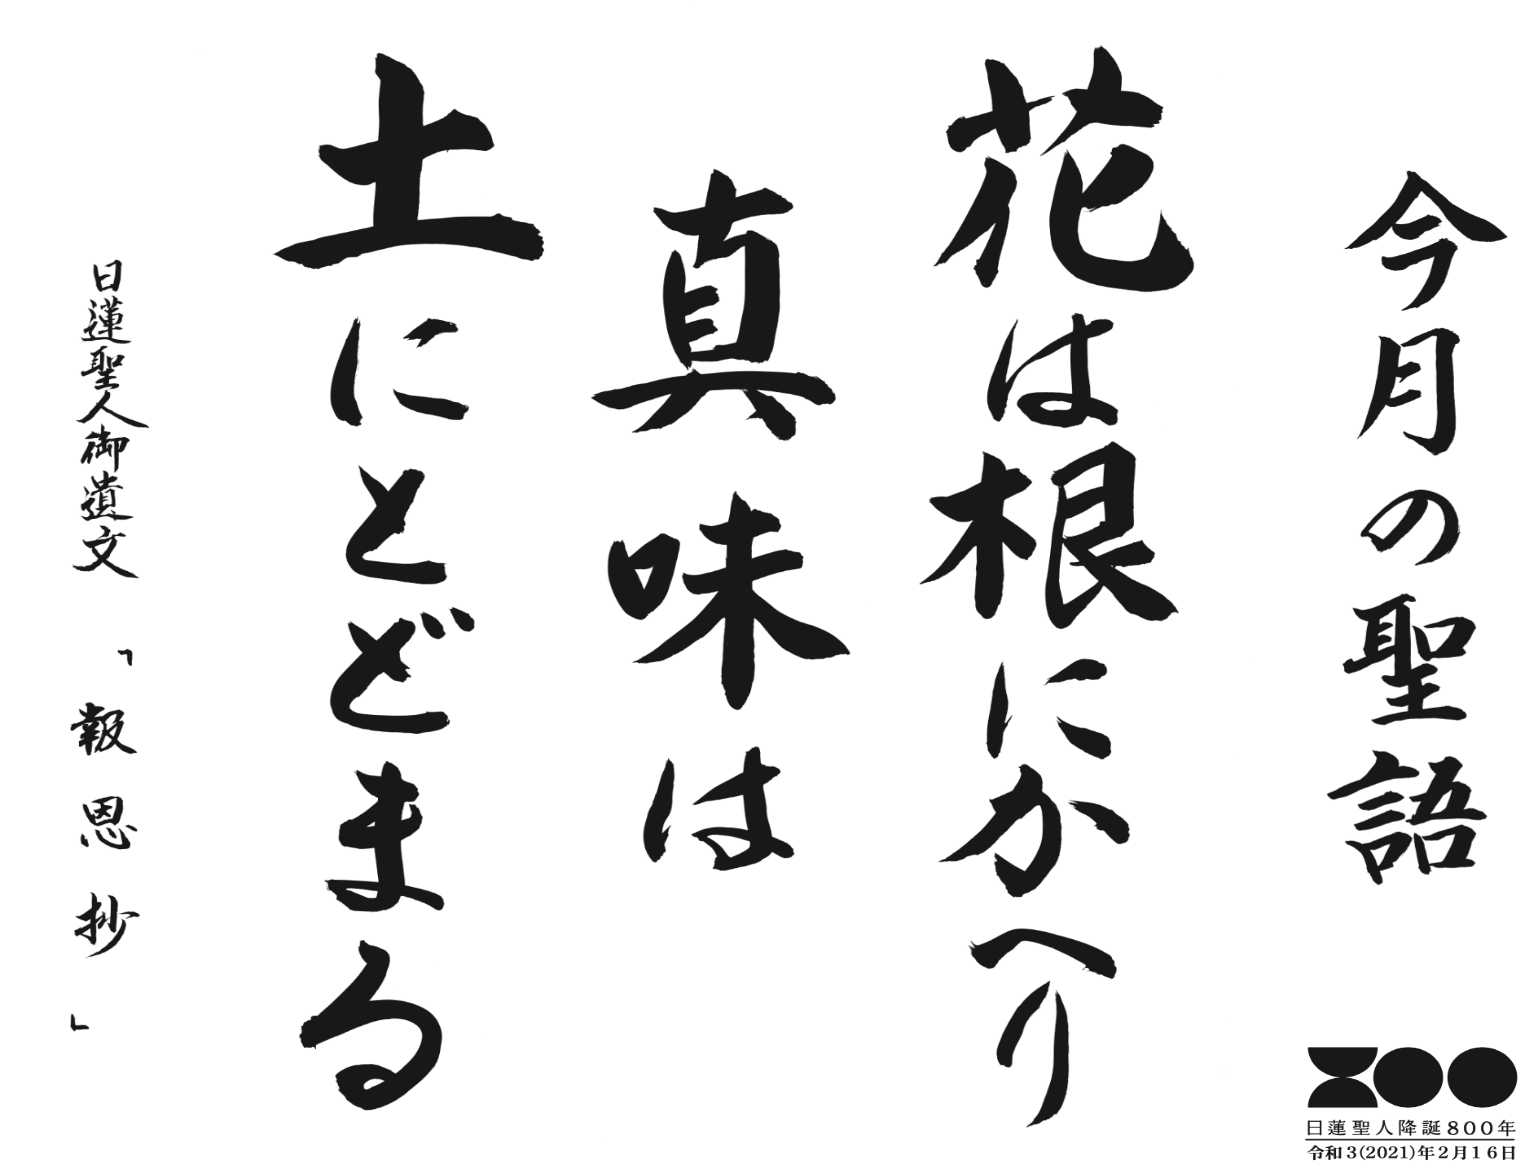 今月の聖語
花は根にかへり
真味は
土にとどまる
日蓮聖人御遺文 「報恩抄」
日蓮聖人降誕800年
令和3(2021)年2月16日